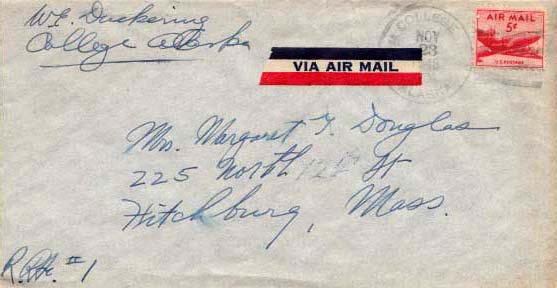 W.E. Duckering
College Alaska
VIA AIR MAIL
COLLEGE
NOV
23
AIR MAIL
5¢
U.S. POSTAGE
Mrs. Margaret T. Douglas
225 North 12th St
Fitchburg, Mass.
#1